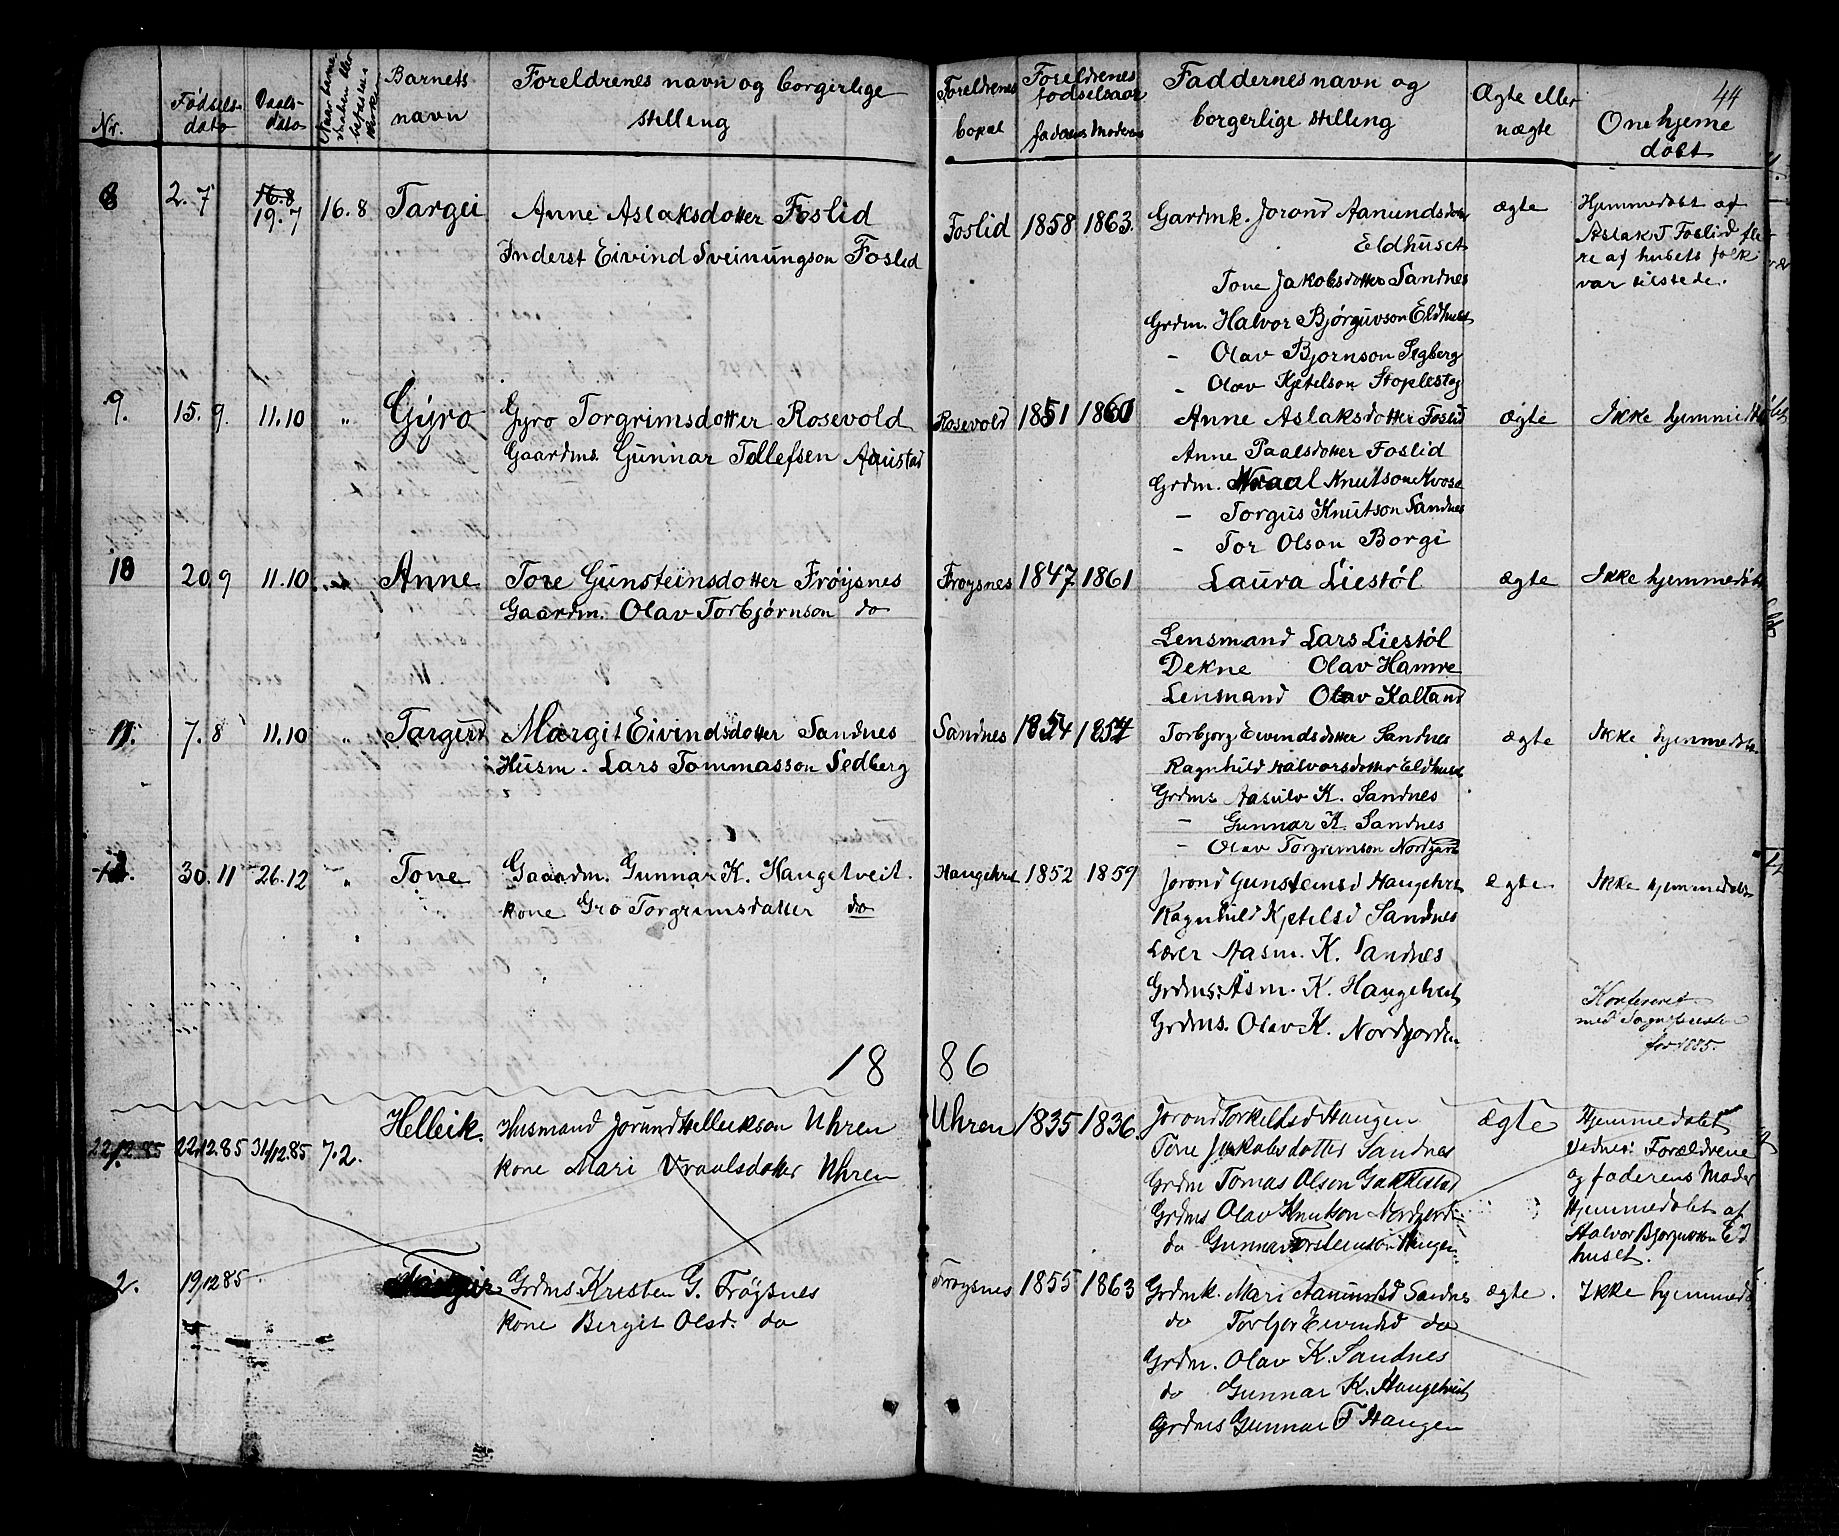 44
Nr.
Fødsels-
dato
Daabs-
dato
Barnets
navn
Foreldrenes navn og borgerlige
stilling
Foreldrenes
bopæl
Foreldrenes
fødselsaar
faderens Moderens
Faddernes navn og
borgerlige stilling
Ægte eller
uægte
Om hjeme
døbt
8 2. 7 16.8 19.7 16.8 Targei
Anne Aslaksdotter Foslid
Inderst Eivind Sveinungson Foslid
Foslid 1858 1863.
Gardmk. Jorond Aanundsdotter
Eldhuset
Tone Jakobsdotter Sandnes
Grdm. Halvor Bjørguvson Eldhuset
- Olav Bjørnson Segberg
- Olav Kjetelson Stoplestog
ægte
Hjemmedøbt af
Aslak T Foslid fle-
re af husets folk
var tilstede.
9. 15. 9. 11.10 " Gyro
Gyro Torgrimsdotter Rosevold
Gaardms. Gunnar Tollefsen
Rosevold 1851 1860
Anne Aslaksdotter Foslid
Anne Paalsdotter Foslid
Grdm. Knutson
- Torgus Knutson Sandnes
- Tor Olson Borgi
ægte
Ikke hjemmedøbt
10 20.9 11.10 Anne
Tore Gunsteinsdotter Frøysnes
Gaardm. Olav Torbjørnson do
Frøysnes 1847 1861
Laura Liestøl
Lensmand Lars Liestøl
Dekne Olav Hamre
Lensmand Olav Kaltand
ægte
Ikke hjemmedøbt
11. 7. 8 11.10 " Targerd
Margit Eivindsdotter Sandnes
Husm. Lars Tommasson Sedberg
Sandnes 1854 1854
Torbjorg Eivindsdotter Sandnes
Ragnhild Halvorsdotter Eldhuset
Grdms. Aasulv K. Sandnes
- Gunnar K. Sandnes
- Olav Torgrimson Nordgard
ægte
Ikke hjemmedøbt
12. 30.11 26.12 " Tone
Gaardm. Gunnar K. Haugetveit.
kone Gro Torgrimsdatter do
Haugetveit 1852 1859
Jorond Gunsteinsd Haugetveit
Ragnhild Kjetelsd Sandnes
Lærer Aasm. K. Sandnes
Grdms. Asm. K. Haugetveit
Grdms. Olav K. Nordgarden
ægte
Ikke hjemmedøbt
Konfereret
med Sognepresten
for 1885.
18 86
1. 22/12.85 22/12.85 31/12.85 7.2. Helleik.
Husmand Jorund Helleikson Uhren
kone Mari Vraalsdotter Uhren
Uhren 1835 1836.
Jorond Torkelsd Haugen
Tone Jakobsdotter Sandnes
Grdm Tomas Olson Gakkestad
Grdms Olav Knutson Nordgard
do Gunnar Torsteinson Haugen
ægte
Hjemmedøbt
Vidner: Forældrene
og faderens Moder
Hjemmedøbt af
Halvor Bjorguvson Eld
huset.
2. 19/12 85
Grdms Kristen G. Frøysnes
kone Bergit Olsd. do
Frøysnes 1855 1863
Grdmk. Mari Aanundsd Sandnes
do Torbjor Eivindsd do
Grdm. Olav K. Sandnes
do Gunnar K. Haugetveit
Grdms Gunnar T Haugen
ægte.
Ikke hjemmedø